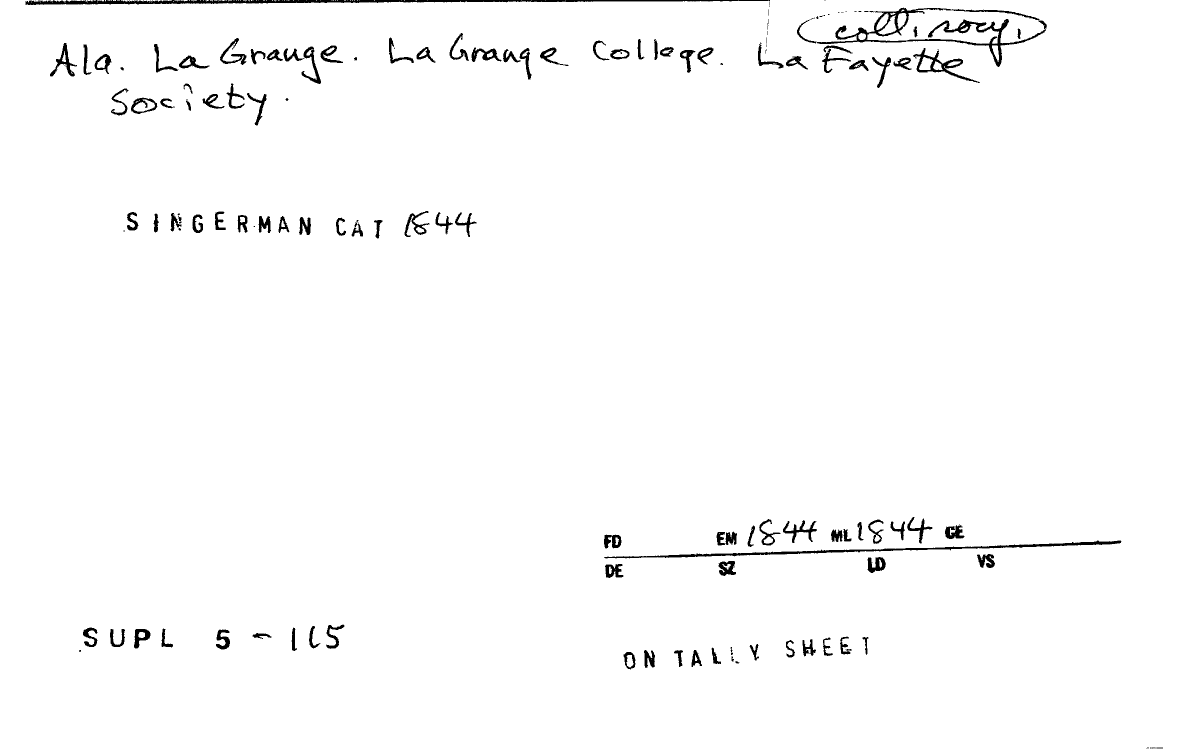 coll. socy.
Ala. La Grange. La Grange College. La Fayette
Society.
SINGERMAN CAT 1844
FD EM 1844 ML 1844 CE
DE SZ LD VS
SUPL 5 - 115
ON TALLY SHEET